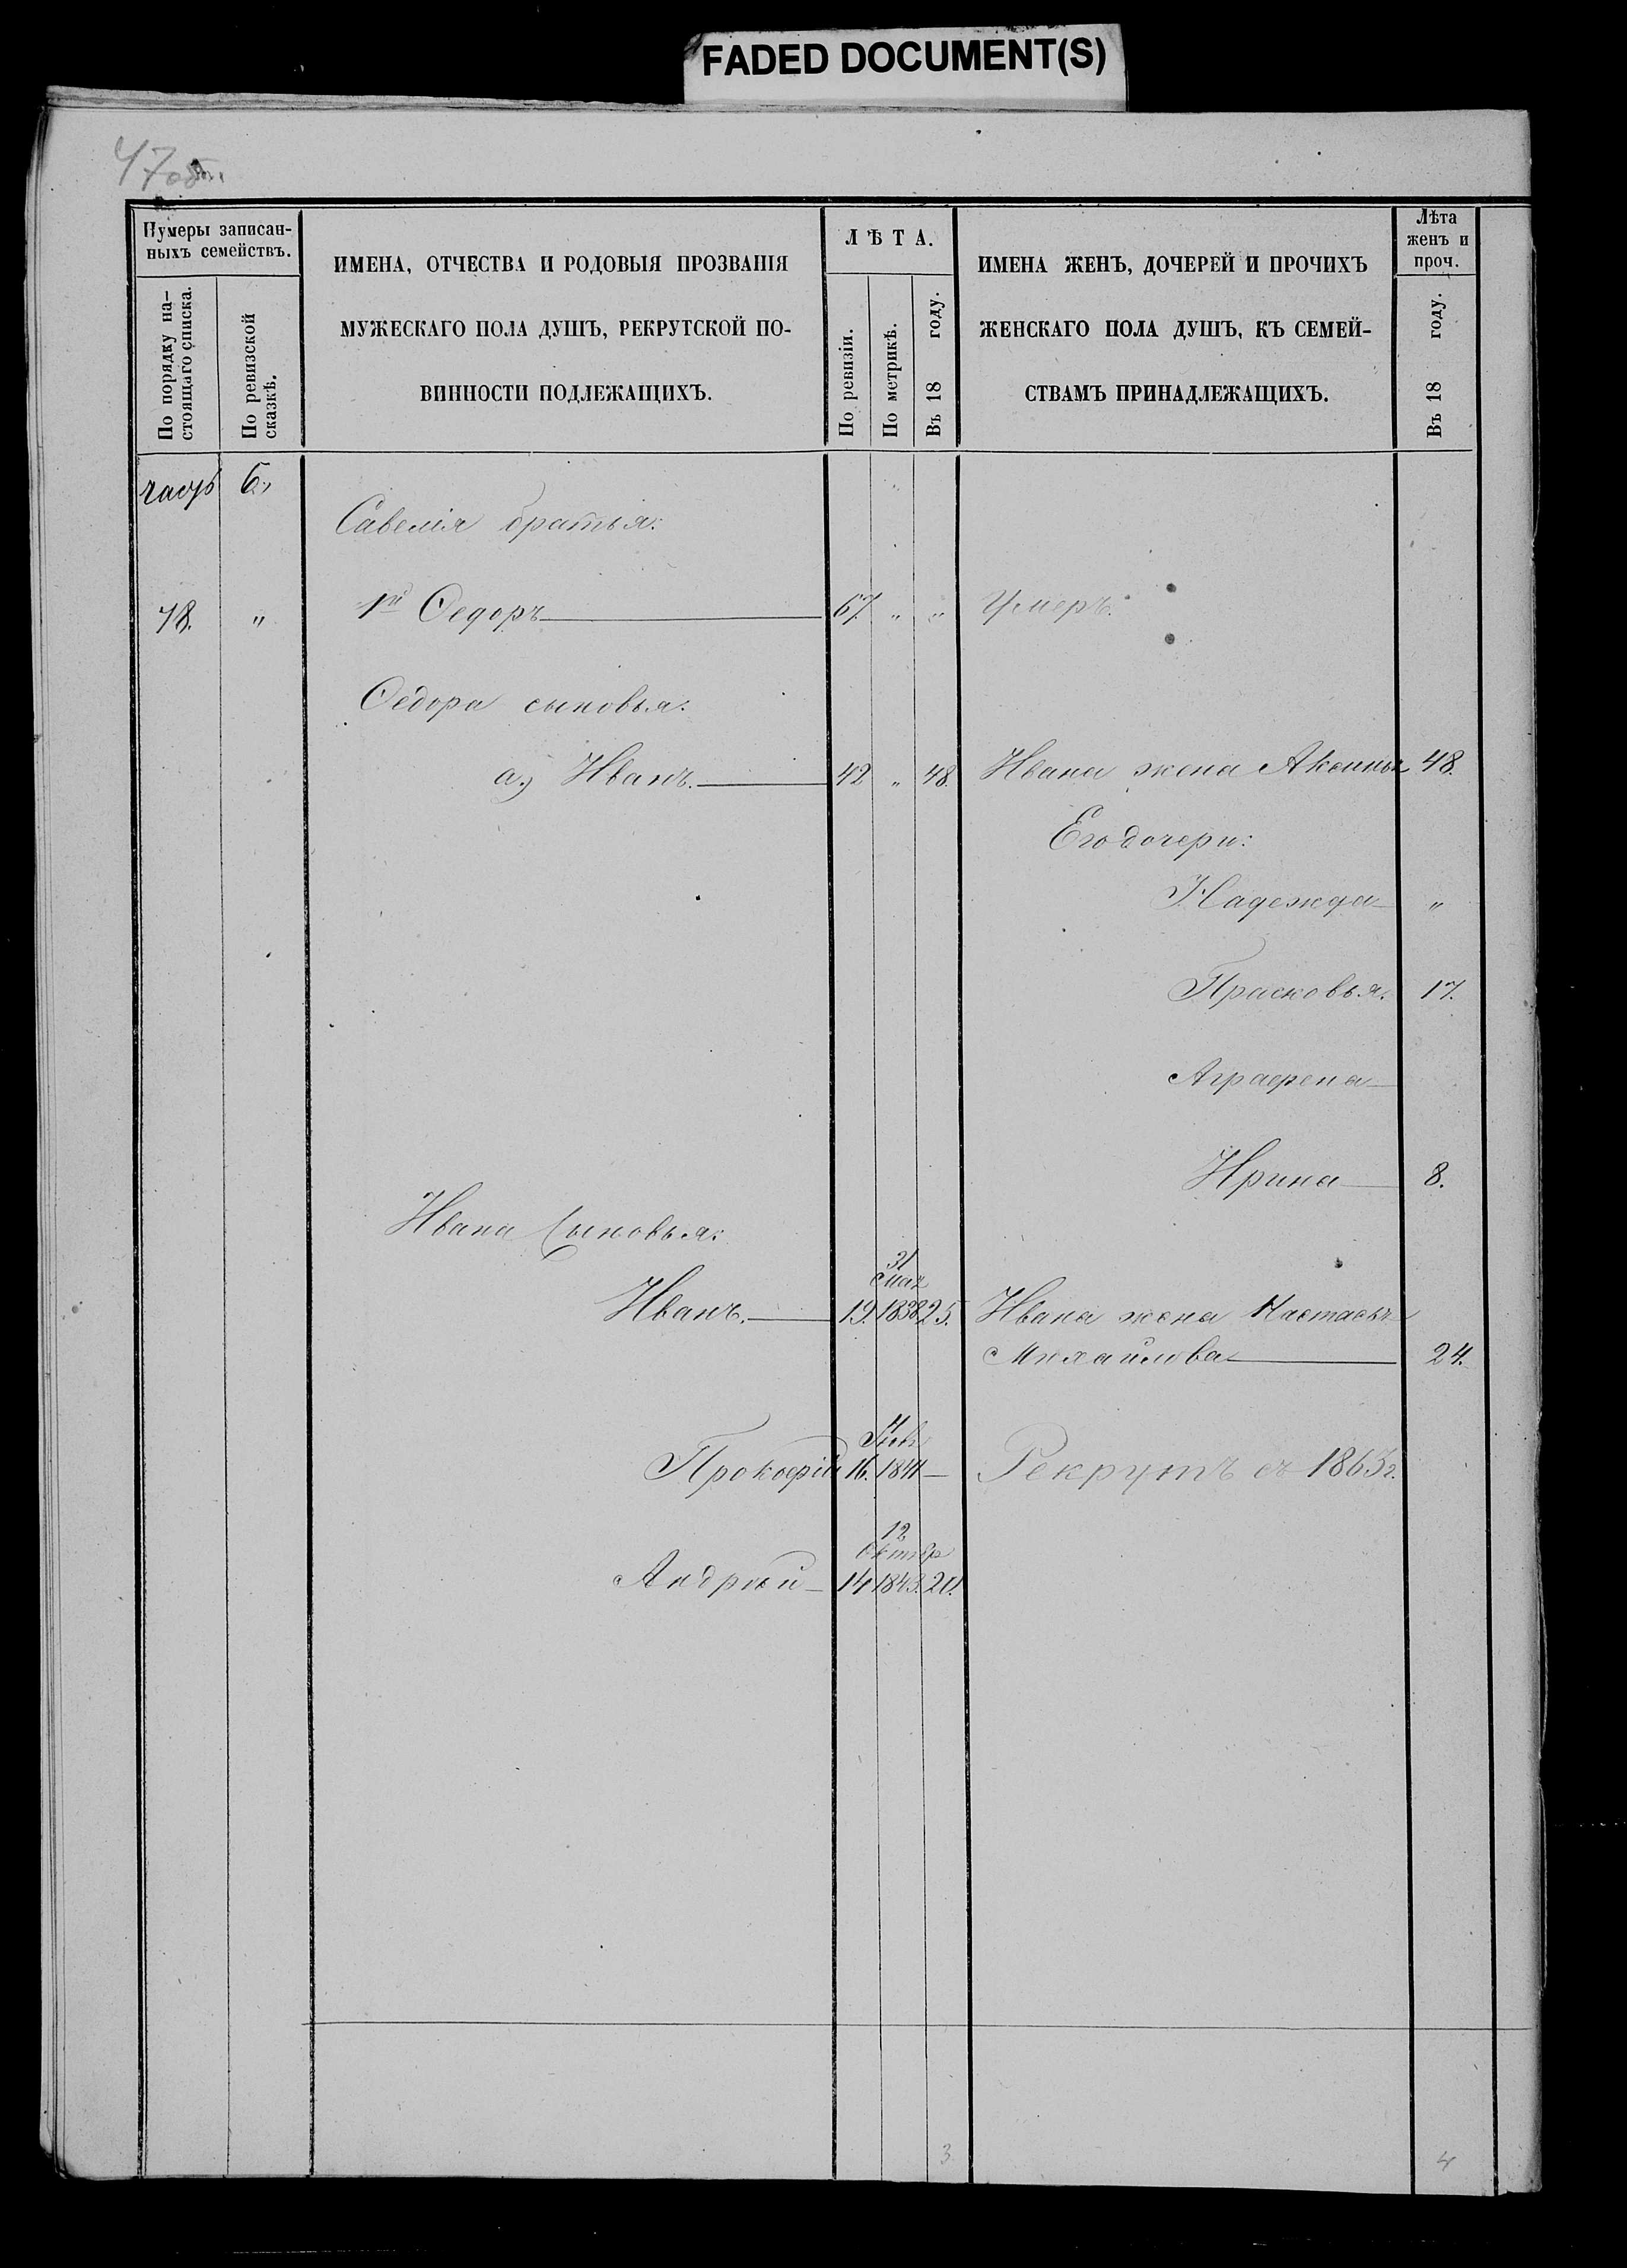 FADED DOCUMENT(S)
47об.
Нумеры записан-
ныхъ семействъ.
По порядку на-
стоящаго списка.
По ревизской
сказкѣ.
ИМЕНА, ОТЧЕСТВА И РОДОВЫЯ ПРОЗВАНІЯ
МУЖЕСКАГО ПОЛА ДУШЪ, РЕКРУТСКОЙ ПО-
ВИННОСТИ ПОДЛЕЖАЩИХЪ.
ЛѢТА.
По ревизіи.
По метрикѣ.
Въ 18 году.
ИМЕНА ЖЕНЪ, ДОЧЕРЕЙ И ПРОЧИХЪ
ЖЕНСКАГО ПОЛА ДУШЪ, КЪ СЕМЕЙ-
СТВАМЪ ПРИНАДЛЕЖАЩИХЪ.
Лѣта
женъ и
проч.
Въ 18 году.
6.,
Савелія братья:
" 1й Ѳедоръ 67. " " Умеръ.
Ѳедора сыновья:
а., Иванъ. 42 " 48. Ивана жена Аксинья 48.
Его дочери:
Надежда "
Прасковья. 17.
Аграфена
Ирина 8.
Ивана Сыновья:
31
Мая
Иванъ. 19. 1838 25. Ивана жена Настасья
Михайлова 24.
Прокофій 16. 1841 — Рекрутъ съ 1863г.
12
Октябр
Андрей 14 1843. 20.
3 4